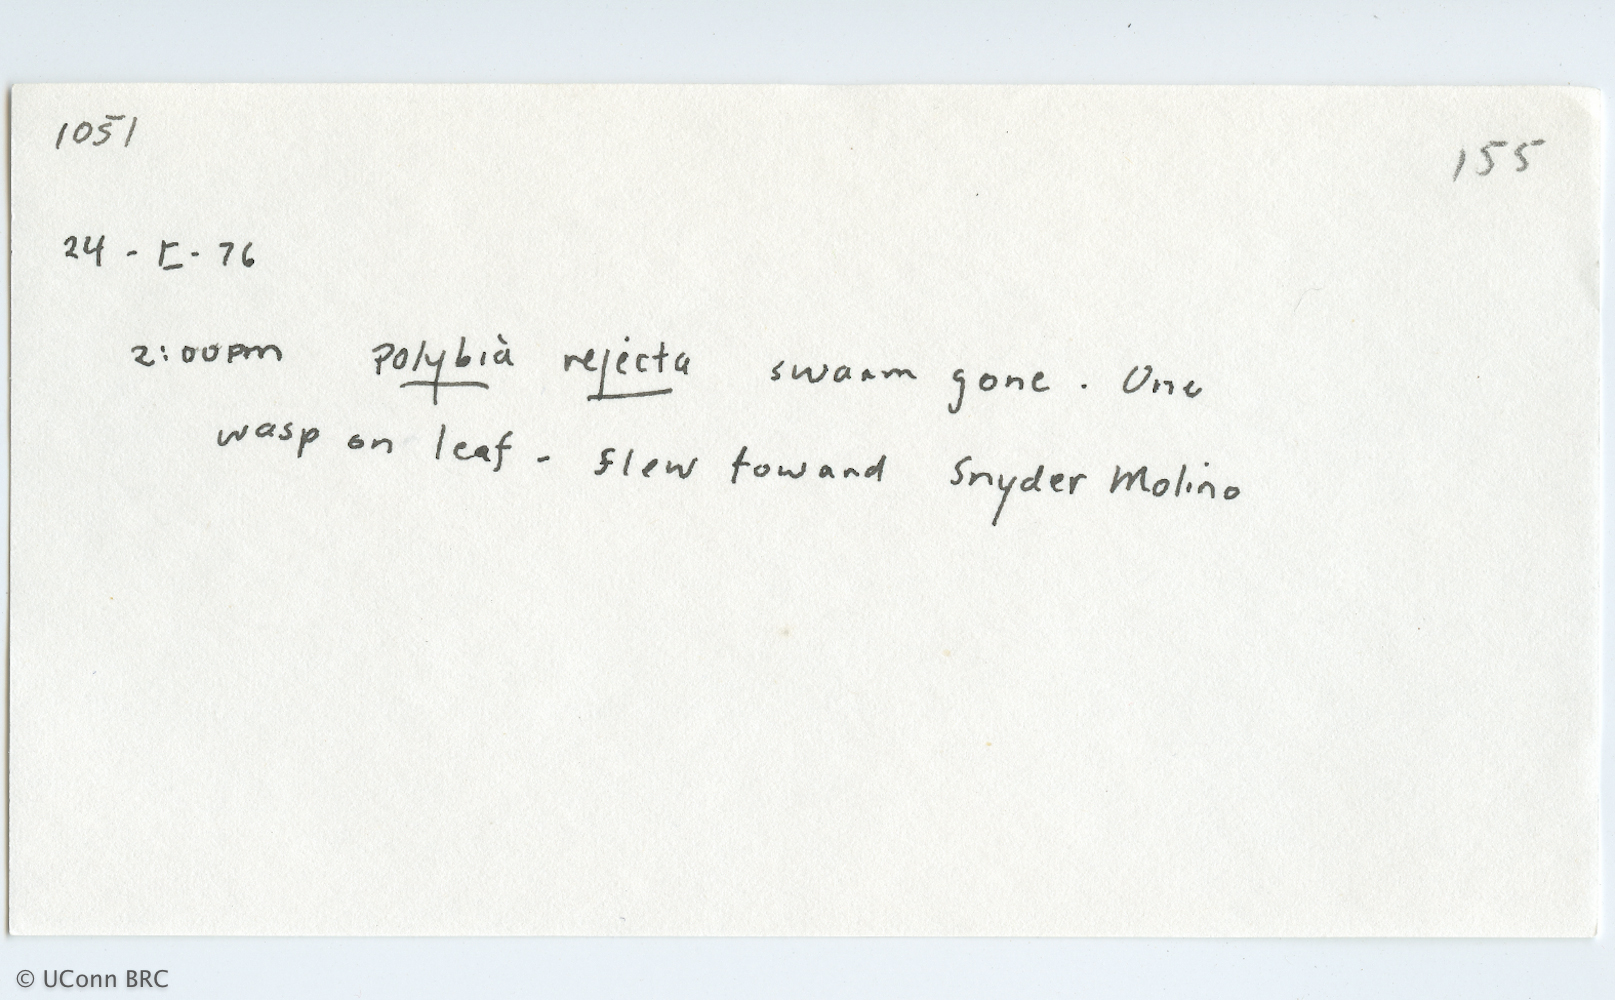 1051
155
24 - I - 76
2:00pm Polybia rejecta swarm gone. One
wasp on leaf - flew toward Snyder Molino
© UConn BRC